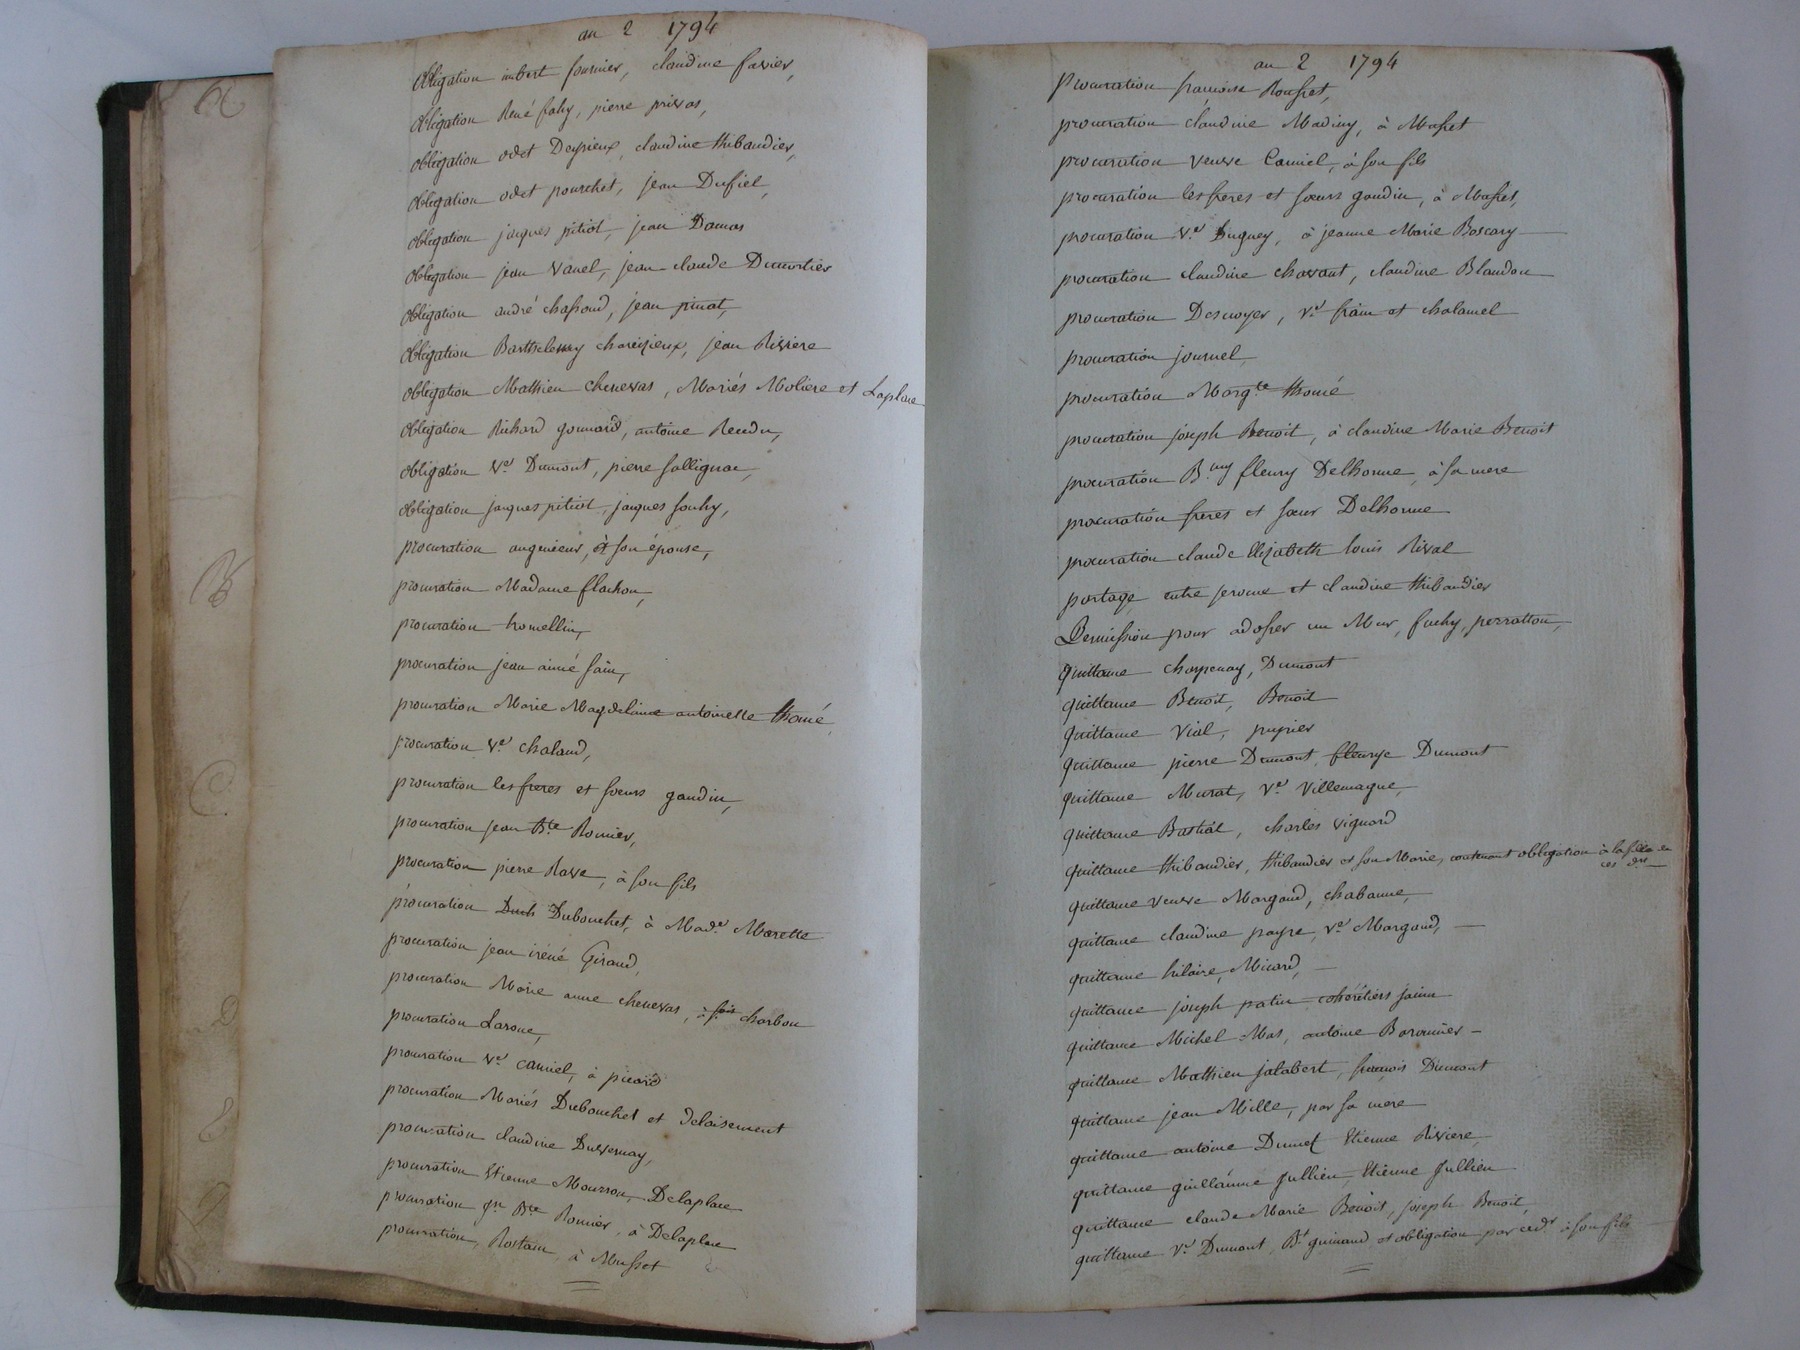 an 2 1794
Obligation imbert fournier, claudine favier,
Obligation René faby, pierre privas,
Obligation odet Deyrieux, claudine thibaudier,
Obligation odet pourchet, jean Dufiel,
Obligation jacques pitiot, jean Damas
Obligation jean vanel, jean claude Dumortier
Obligation andré chassond, jean pinat,
Obligation Barthelemy chareizieux, jean Riviere
Obligation Mathieu chenevas, Mariés Moliere et Laplace
Obligation Richard gonnard, antoine Rendu,
Obligation Ve. Dumont, pierre sallignac,
Obligation jacques pitiot, jacques souhy,
procuration augenieur, à son épouse,
procuration Madame flachon,
procuration tromellin,
procuration jean aimé sain,
procuration Marie Magdelaine antoinette thomé,
procuration Ve. chaland,
procuration les freres et soeurs gaudin,
procuration jean Bte Romier,
procuration pierre Rave, à son fils
procuration Dubouchet, à Made. Marette
procuration jean iréné Giraud,
procuration Marie anne chenevas, à charbon
procuration Laroue,
procuration Ve. caniel, à picard
procuration Mariés Dubouchet et delaisement
procuration claudine Duvernay,
procuration Etienne Mourron, Delaplace
procuration jn Bte Romier, à Delaplace
procuration, Rostain, à Musset
A
B
C
D
E
an 2 1794
Procuration françoise Rousset,
procuration claudine Madiny, à Masset
procuration veuve Caniel, à son fils
procuration les freres et soeurs gaudin, à Masset,
procuration Ve. Duguey, à jeanne Marie Boscary
procuration claudine chavant, claudine Blandon
procuration Desenoyer, Ve. frain et chalamel
procuration journel
procuration Margte thomé
procuration joseph Benoit, à claudine Marie Benoit
procuration Bmy fleury Delhorme, à sa mere
procuration freres et soeur Delhorme
procuration claude Elizabeth louis Rival
partage entre jerome et claudine thibaudier
Permission pour adosser un Mur, fuchy, perratton,
Quittance charpenay, Dumont
quittance Benoit, Benoit
quittance Vial, pupier
quittance pierre Dumont, fleurye Dumont
quittance Murat, Ve. Villemagne,
quittance Bastiat, charles vignard
quittance thibaudier, thibaudier et son Marie, contenant obligation à la fille en
ces
quittance veuve Margand, chabanne,
quittance claudine payre, Ve. Margand,
quittance hilaire, Micard,
quittance joseph patin cohéritiers jaine
quittance Michel Mas, antoine Baronnier
quittance Mathieu jalabert, françois Dumont
quittance jean Mille, par sa mere
quittance antoine Etienne Riviere
quittance guillaume jullien, Etienne Jullien
quittance claude Marie Benoit, joseph Benoit
quittance Ve. Dumont, guinand et obligation par à son fils